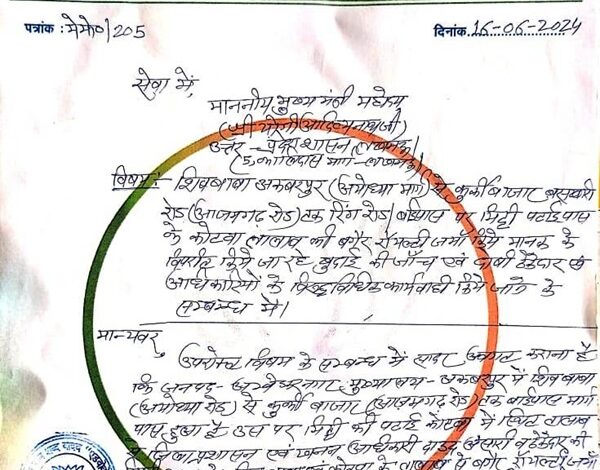 पत्रांक : मेमो/205
दिनांक 16-06-2024
सेवा में,
माननीय मुख्य मंत्री महोदय
(श्री योगी आदित्यनाथ जी)
उत्तर - प्रदेश शासन लखनऊ
(5, कालिदास मार्ग - लखनऊ)
विषय:- शिवबाबा अकबरपुर (अयोध्या मार्ग) से कुर्की बाजार बसखारी
रोड (आजमगढ़ रोड) तक रिंग रोड / बाईपास पर मिट्टी पटाई पास
के कोटवा तालाब की बगैर रॉयल्टी जमा किये मानक के
विपरीत किये जा रहे खुदाई की जाँच एवं दोषी ठेकेदार एवं
अधिकारियों के विरुद्ध विधिक कार्यवाही किये जाने के
सम्बन्ध में।
मान्यवर,
उपरोक्त विषय के सम्बन्ध में सादर अवगत कराना है
कि जनपद - अम्बेडकरनगर मुख्यालय - अकबरपुर में शिवबाबा
(अयोध्या रोड) से कुर्की बाजार (आजमगढ़ रोड) तक बाईपास मार्ग
पास हुआ है उस पर मिट्टी की पटाई कोटवा में स्थित तालाब
जिला प्रशासन एवं खनन अधिकारी ठेकेदार की
के तालाब में बगैर रॉयल्टी जमा